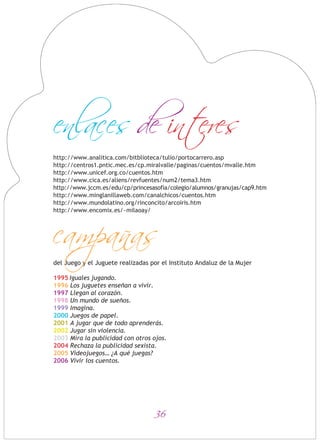 enlaces de interes
http://www.analitica.com/bitblioteca/tulio/portocarrero.asp
http://centros1.pntic.mec.es/cp.miralvalle/paginas/cuentos/mvalle.htm
http://www.unicef.org.co/cuentos.htm
http://www.cica.es/aliens/revfuentes/num2/tema3.htm
http://www.jccm.es/edu/cp/princesasofia/colegio/alumnos/granujas/cap9.htm
http://www.minglanillaweb.com/canalchicos/cuentos.htm
http://www.mundolatino.org/rinconcito/arcoiris.htm
http://www.encomix.es/~milaoay/
campañas
del Juego y el Juguete realizadas por el Instituto Andaluz de la Mujer
1995 Iguales jugando.
1996 Los juguetes enseñan a vivir.
1997 Llegan al corazón.
1998 Un mundo de sueños.
1999 Imagina.
2000 Juegos de papel.
2001 A jugar que de todo aprenderás.
2002 Jugar sin violencia.
2003 Mira la publicidad con otros ojos.
2004 Rechaza la publicidad sexista.
2005 Videojuegos… ¿A qué juegas?
2006 Vivir los cuentos.
36